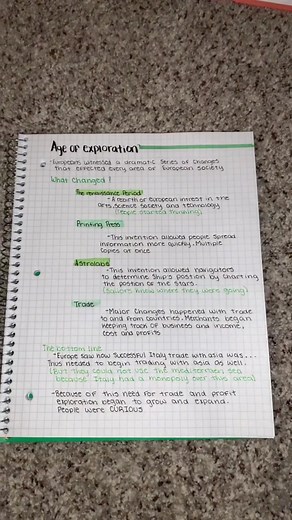 Age of Exploration
-Europeans witnessed a dramatic series of changes
that effected every area of European society
What Changed?
The Renaissance Period
-A rebirth of European intrest in the
arts, science society and technology
(People started thinking)
Printing Press
-This invention allowed people spread
information more quickly. Multiple
copies at once
Astrolabe
-This invention allowed navigators
to determine ship's postion by charting
the postion of the stars.
(Sailors knew where they were going)
Trade
-Major Changes happened with trade
to and from countries. Merchants began
keeping track of business and income,
cost and profits
The bottom line
-Europe saw how successful Italy trade with asia was...
Thus needed to begin trading with asia as well.
(But they could not use the mediterranean sea
because Italy had a monopoly over this area)
-Because of this need for trade and profit
exploration began to grow and expand.
People were CURIOUS